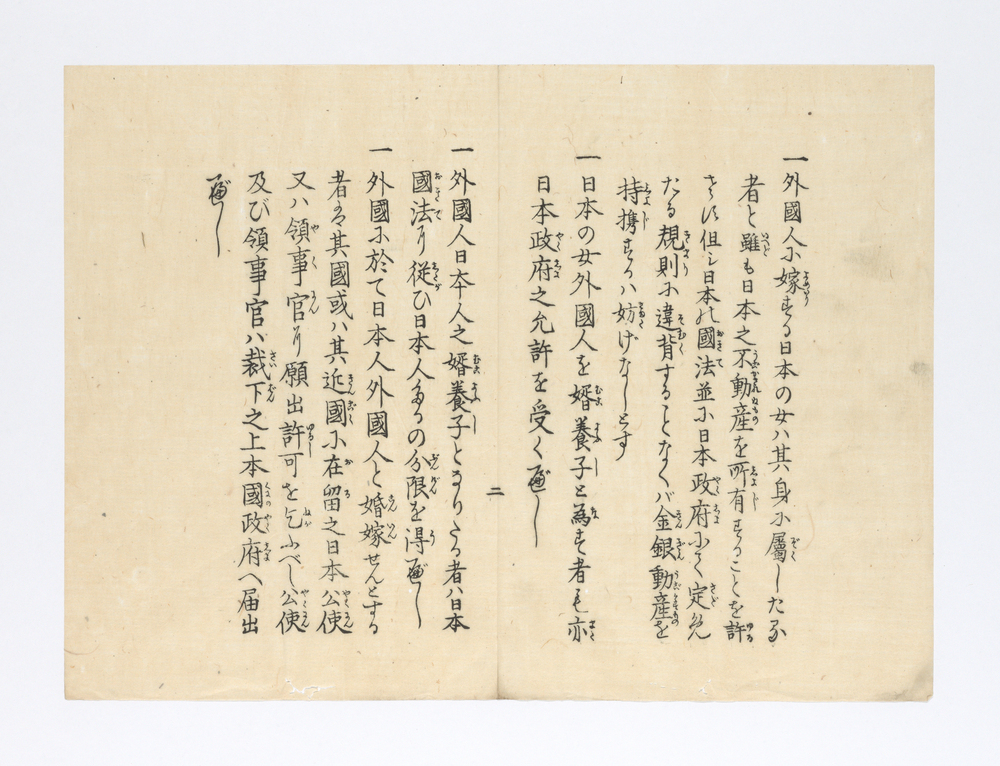 一外國人に嫁する日本の女ハ其身に屬したる
者と雖も日本之不動産を所有することを許
さす但シ日本の國法並に日本政府にて定めん
たる規則に違背することなくバ金銀動産を
持携するハ妨げなしとす
一日本の女外國人を婿養子と為す者も亦
日本政府之允許を受く可し
二
一外國人日本人之婿養子となりたる者ハ日本
國法に従ひ日本人たるの分限を得可し
一外國に於て日本人外國人と婚嫁せんとする
者は其國或ハ其近國に在留之日本公使
又ハ領事官に願出許可を乞ふべし公使
及び領事官ハ裁下之上本國政府へ届出
可し